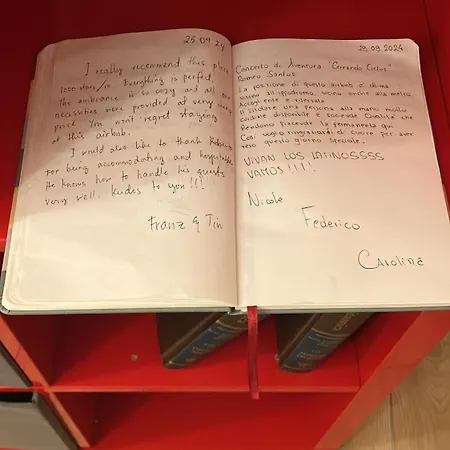 25.09.24
I really recommend this place
1000 stars/10. Everything is perfect.
The ambiance is so cozy and all our
necessities were provided at very
price. You won't regret staying
at this airbnb.
I would also like to thank Roberto
for being accommodating and hospitable.
He knows how to handle his guests
very well. Kudos to you!!!
Franz & Tin
29.09.2024
Concerto di Aventura "Cerrando Ciclos"
Romeo Santos
La posizione di questo airbnb è ottima
vicino all'ippodromo, vicino anche alla metro
Accogliente e
il signore una persona alla mano molto
cordiale disponibile e socievole Qualità che
Rendono Piacevole la permanenza qui
Così voglio ringraziarvi di cuore per aver
reso questo giorno speciale.
VIVAN LOS LATINOSSSS
VAMOS !!!!
Nicole
Federico
Carolina